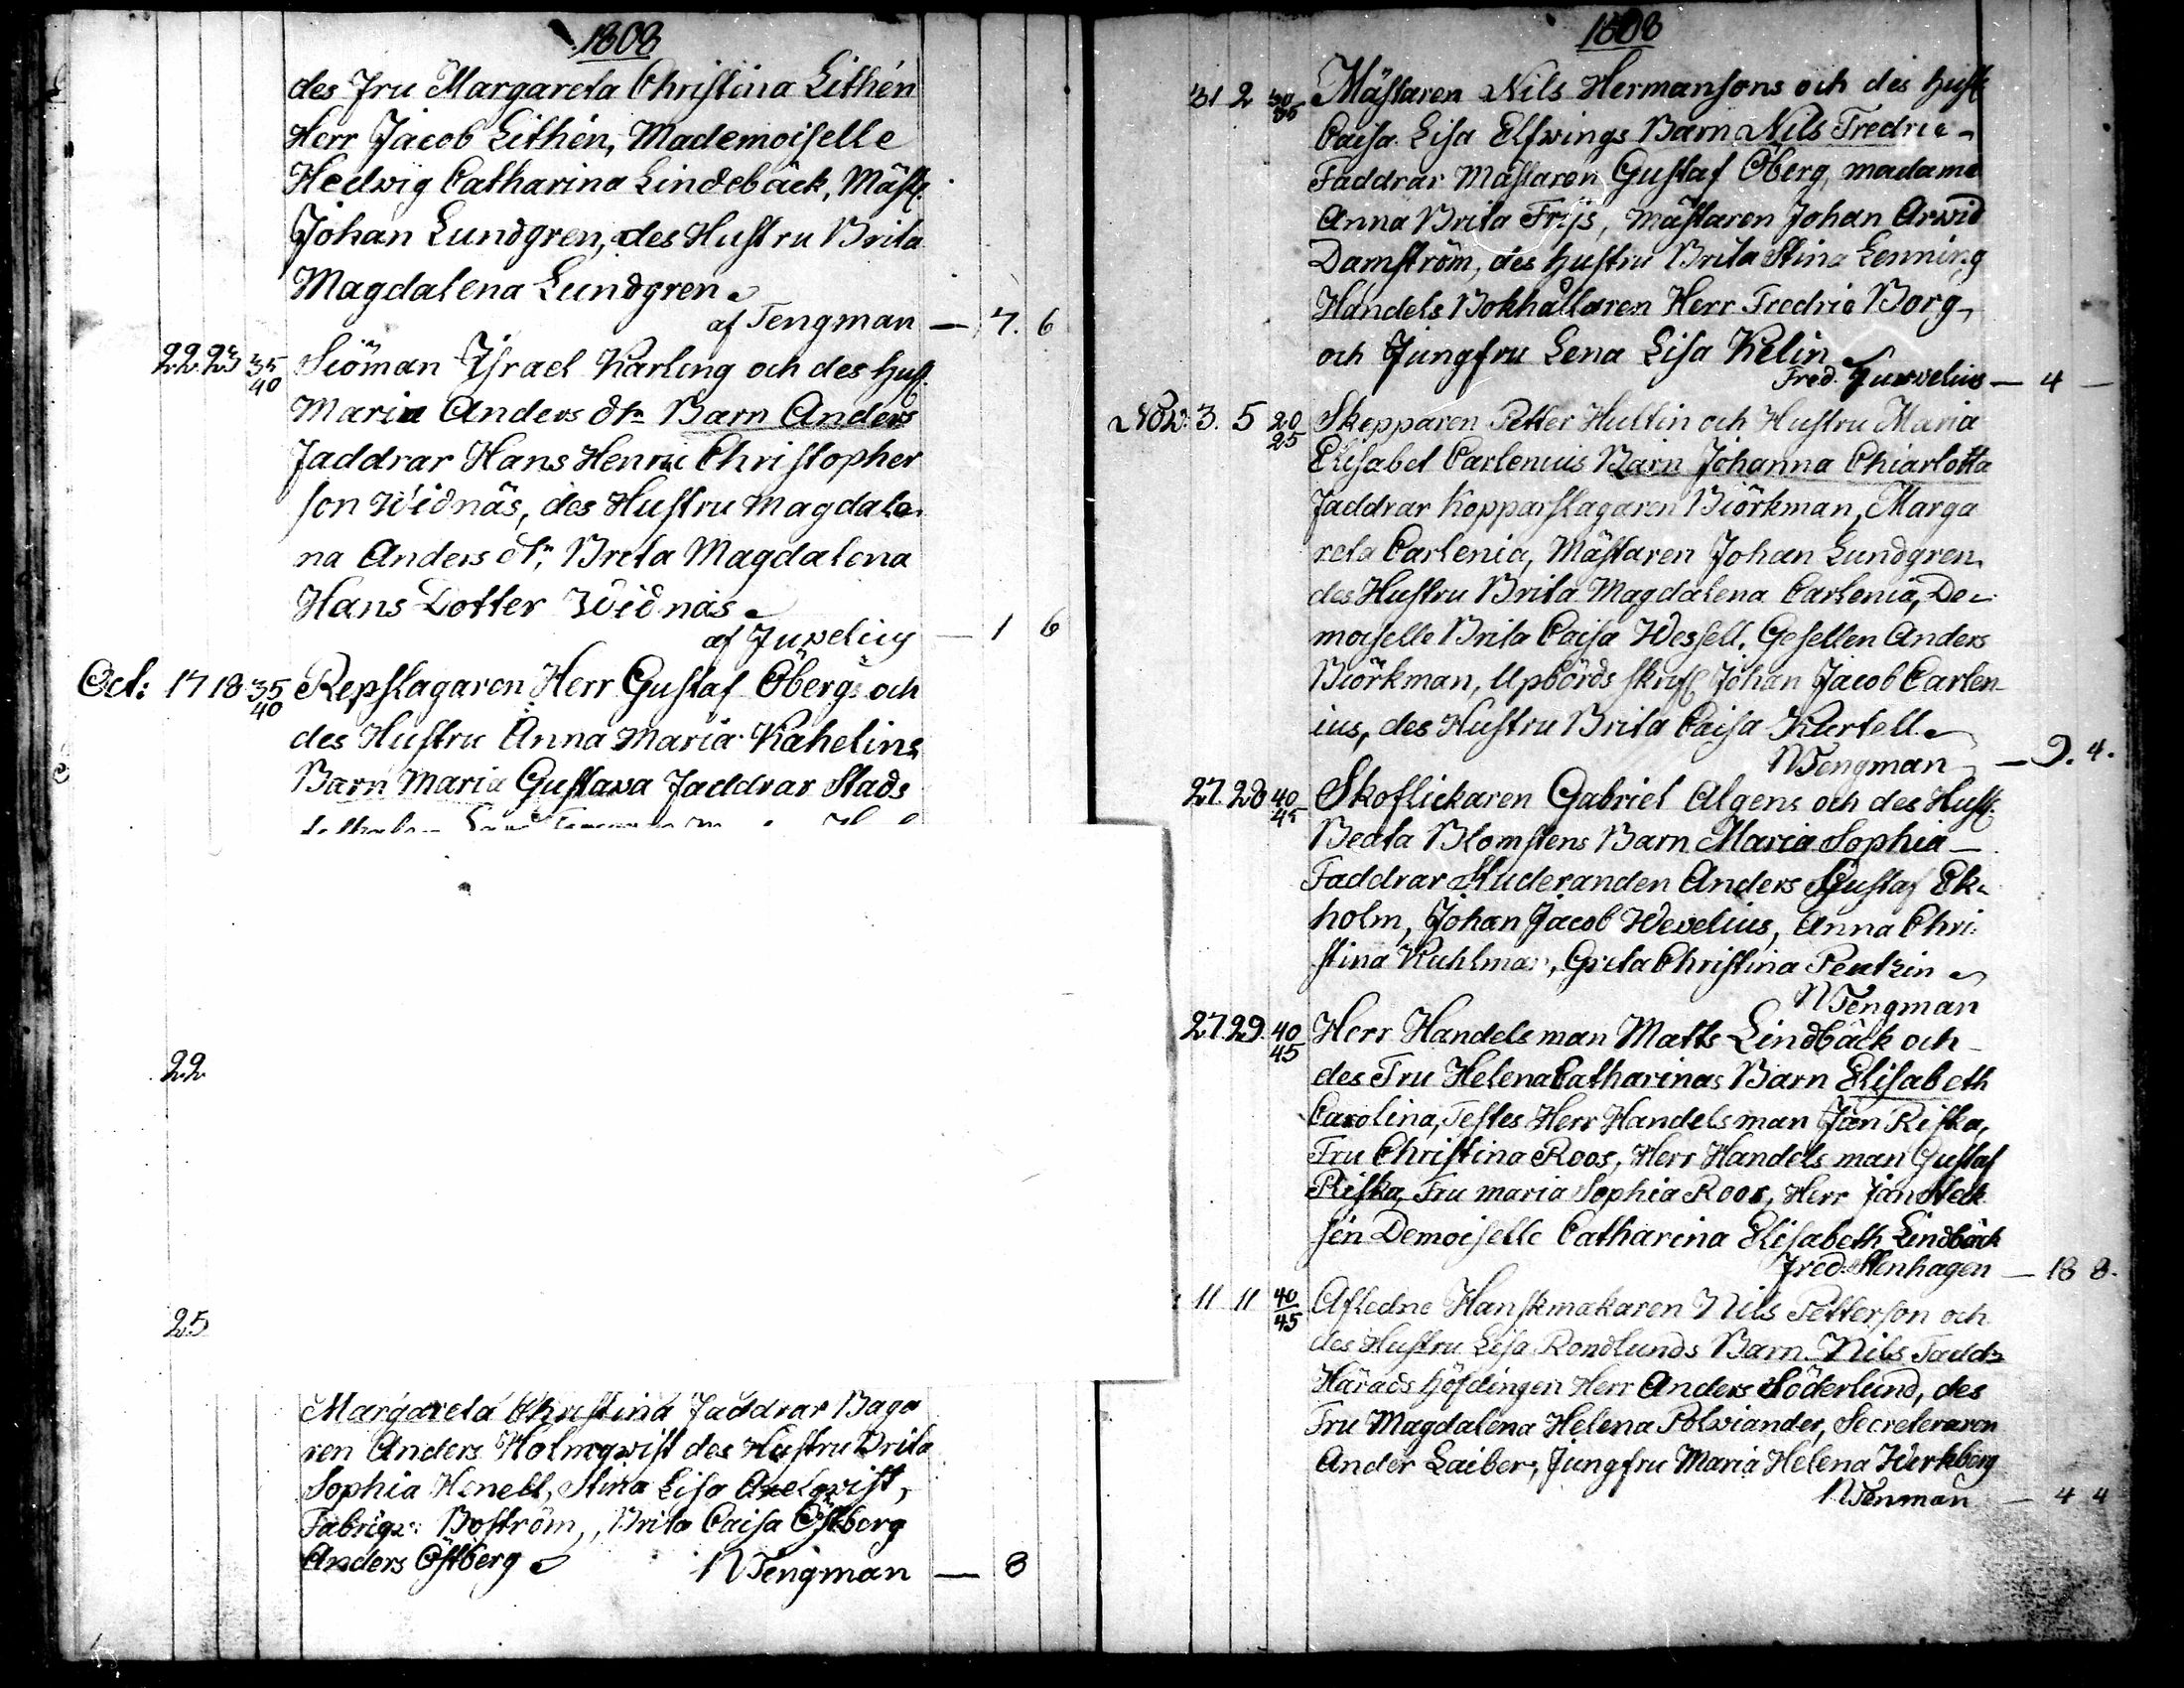 1808
des Fru Margareta Christina Lithén
Herr Jacob Lithén, Mademoiselle
Hedwig Catharina Lindebäck, Mäst.
Johan Lundgren, des Hustru Brita
Magdalena Lundgren
af Tengman — 7. 6
22. 23 35/40 Siöman Israel Karlong och des Hust.
Maria Anders dr Barn Anders
Faddrar Hans Henric Christopher
son Widnäs, des Hustru Magdale
na Anders dr, Breta Magdalena
Hans Dotter Widnäs
af Juvelius — 1 6
Oct: 17 18 35/40 Repslagaren Herr Gustaf Öbergs och
des Hustru Anna Maria Kahelins
Barn Maria Gustava Faddrar Stads
22
25
Margareta Christina Faddrar Baga
ren Anders Holmqwist des Hustru Brita
Sophia Honell, Stina Lisa Axelqvist,
Fabriqs: Boström, Brita Caisa Östberg
Anders Östberg
N Tengman — 8
1808
31 2 30/35 Mästaren Nils Hermansons och des Hust
Caisa Lisa Elfwings Barn Nils Fredric
Faddrar Mästaren Gustaf Öberg, madame
Anna Brita Frijs, Mästaren Johan Arwid
Damström, des Hustru Brita Stina Lenning
Handels Bokhållaren Herr Fredric Borg,
och Jungfru Lena Lisa Kelin
Fred. Juvelius — 4 —
Nov: 3. 5 20/25 Skepparen Petter Hultin och Hustru Maria
Elisabet Carlenius Barn Johanna Chiarlotta
Faddrar Kopparslagaren Biörkman, Marga
reta Carlenia, Mästaren Johan Lundgren
des Hustru Brita Magdalena Carlenia, De
moiselle Brita Caisa Wessell, Gesellen Anders
Biörkman, Upbörds skrif. Johan Jacob Carlen
ius, des Hustru Brita Caisa Kurtell
N Tengman — 9. 4.
27. 28 40/45 Skoflickaren Gabriel Algens och des Hust.
Beata Blomstens Barn Maria Sophia —
Faddrar Studeranden Anders Gustaf Ek
holm, Johan Jacob Wevelius, Anna Chri
stina Kuhlman, Greta Christina Peutzin
N Tengman
27. 29. 40/45 Herr Handelsman Matts Lindbäck och
des Fru Helena Catharinas Barn Elisabeth
Carolina, Testes Herr Handelsman Jan Riska,
Fru Christina Roos, Herr Handels man Gustaf
Riska, Fru maria Sophia Roos, Herr Jan Heck
sén Demoiselle Catharina Elisabeth Lindbäck
Fred: Stenhagen — 18 8.
11 11 40/45 Afledne Hanskmakaren Nils Petterson och
des Hustru Lisa Rondlunds Barn Nils Fadd:
Härads höfdingen Herr Anders Söderlund, des
Fru Magdalena Helena Polviander, Secreteraren
Ander Laiber, Jungfru Maria Helena Werkberg
N Tenman — 4 4